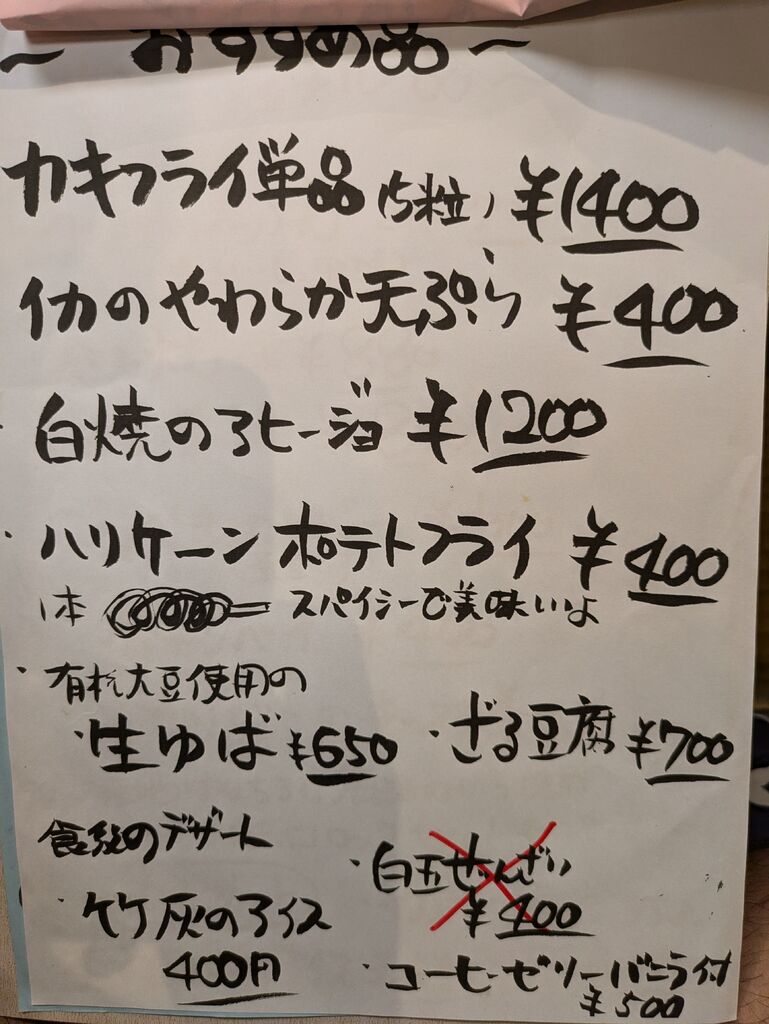 ～ おすすめ品 ～
カキフライ単品(5粒) ¥1400
イカのやわらか天ぷら ¥400
白焼のアヒージョ ¥1200
・ハリケーンポテトフライ ¥400
1本 スパイシーで美味いよ
・有机大豆使用の
・生ゆば ¥650 ・ざる豆腐 ¥700
食後のデザート
・白玉ぜんざい
¥400
・竹灰のアイス
400円
・コーヒーゼリーバニラ付
¥500